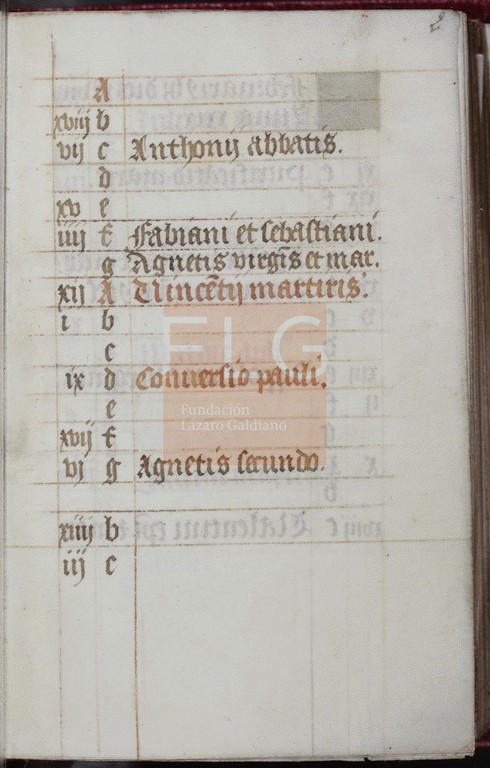 2
A
xviij b
vij c Anthonij abbatis.
d
xv e
iiij f Fabiani et sebastiani.
g Agnetis virgīs et mar.
xij A Vincētij martiris.
i b
c
ix d Conversio pauli.
e
xvij f
vj g Agnetis secundo.
xiiij b
iij c
FLG
Fundación
Lázaro Galdiano